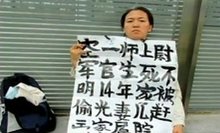 空二师上尉
军官生死不
明14年家被
偷光妻儿赶
出家属院